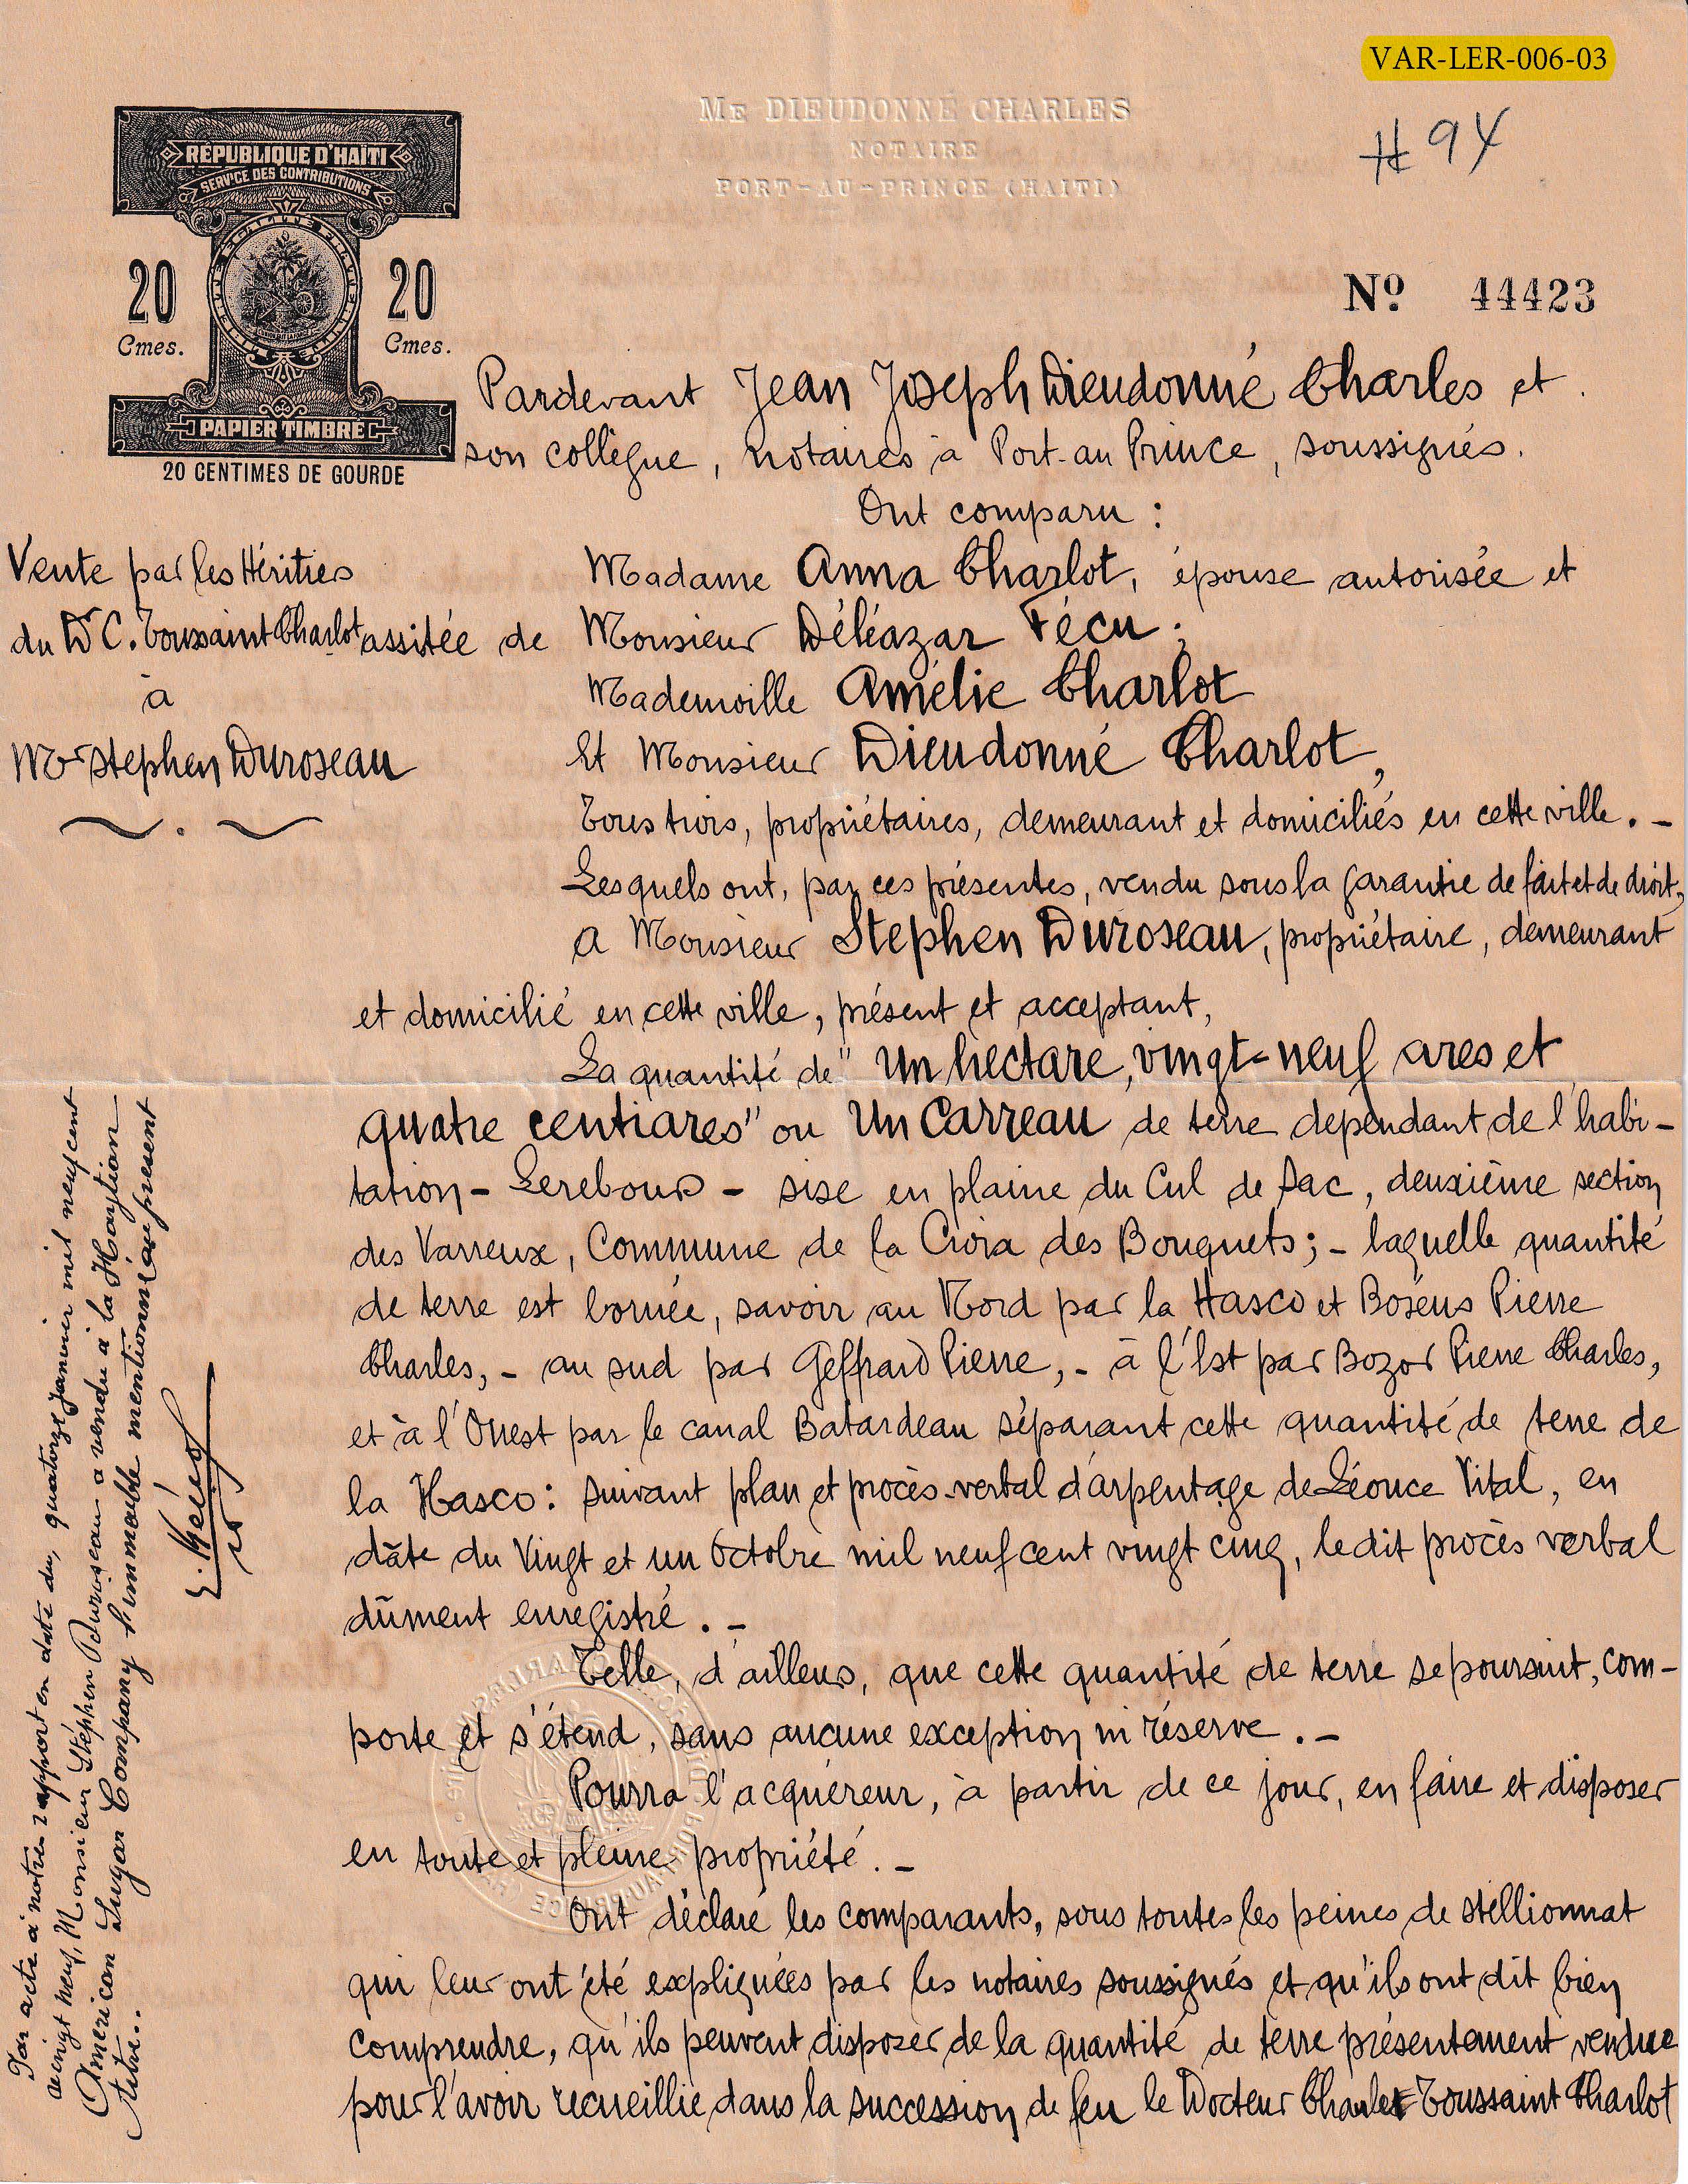 VAR-LER-006-03
# 94
ME DIEUDONNÉ CHARLES
NOTAIRE
PORT-AU-PRINCE (HAITI)
RÉPUBLIQUE D'HAÏTI
SERVICE DES CONTRIBUTIONS
20 Cmes.
20 Cmes.
PAPIER TIMBRÉ
20 CENTIMES DE GOURDE
No 44423
Pardevant Jean Joseph Dieudonné Charles et
son collègue, notaires à Port-au-Prince, soussignés.
Ont comparu :
Vente par les Héritiers
du Dr C. Toussaint Charlot
à
Mr Stephen Duroseau
Madame Anna Charlot, épouse autorisée et
assitée de Monsieur Déléazar Fécu ;
Mademoille Amélie Charlot
Et Monsieur Dieudonné Charlot,
Tous trois, propriétaires, demeurant et domiciliés en cette ville. -
Lesquels ont, par ces présentes, vendu sous la garantie de fait et de droit,
a Monsieur Stephen Duroseau, propriétaire, demeurant
et domicilié en cette ville, présent et acceptant,
La quantité de "Un hectare, vingt-neuf ares et
quatre centiares" ou Un Carreau de terre dependant de l'habi-
tation - Lerebours - sise en plaine du Cul de Sac, deuxième section
des Varreux, Commune de la Croix des Bouquets; - laquelle quantité
de terre est bornée, savoir au Nord par la Hasco et Boséus Pierre
Charles, - au sud par Geffrard Pierre, - à l'Est par Bozor Pierre Charles,
et à l'Ouest par le canal Batardeau séparant cette quantité de terre de
la Hasco : suivant plan et procès-verbal d'arpentage de Léonce Vital, en
dâte du Vingt et un Octobre mil neuf cent vingt cinq, le dit procès verbal
dûment enregistré. -
Telle, d'ailleurs, que cette quantité de terre se poursuit, com-
porte et s'étend, sans aucune exception ni réserve. -
Pourra l'acquéreur, à partir de ce jour, en faire et disposer
en toute et pleine propriété. -
Ont déclaré les comparants, sous toutes les peines de stellionnat
qui leur ont été expliquées par les notaires soussignés et qu'ils ont dit bien
comprendre, qu'ils peuvent disposer de la quantité de terre présentement vendue
pour l'avoir recueillie dans la succession de feu le Docteur Charles Toussaint Charlot
Par acte à notre rapport en date du, quatorze Janvier mil neuf cent
vingt neuf, Monsieur Stéphen Duroseau a vendu à la Haytian
American Sugar Company l'immeuble mentionné au présent
titre..